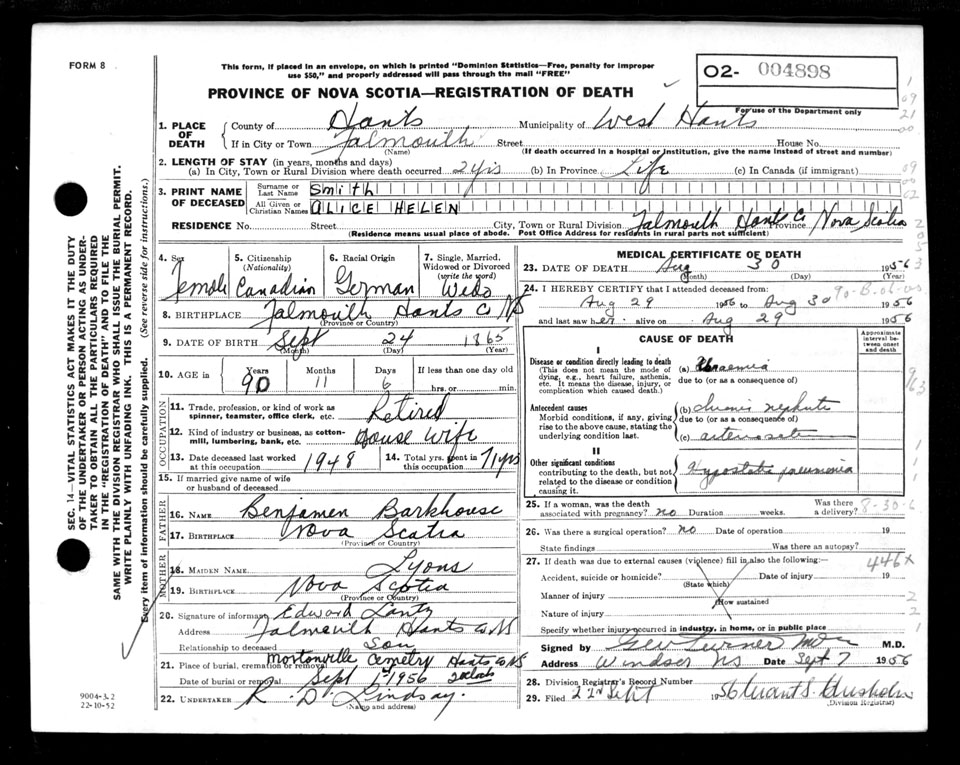 FORM 8
This form, if placed in an envelope, on which is printed "Dominion Statistics—Free, penalty for improper
use $50," and properly addressed will pass through the mail "FREE"
PROVINCE OF NOVA SCOTIA—REGISTRATION OF DEATH
O2- 004898
For use of the Department only
1. PLACE OF DEATH
County of Hants Municipality of West Hants
If in City or Town Falmouth Street House No.
(Name) (If death occurred in a hospital or institution, give the name instead of street and number)
2. LENGTH OF STAY (in years, months and days)
(a) In City, Town or Rural Division where death occurred 2 yrs (b) In Province Life (c) In Canada (if immigrant)
3. PRINT NAME OF DECEASED
Surname or Last Name Smith
All Given or Christian Names ALICE HELEN
RESIDENCE No. Street City, Town or Rural Division Falmouth Hants Co Province Nova Scotia
(Residence means usual place of abode. Post Office Address for residents in rural parts not sufficient)
4. Sex Female
5. Citizenship (Nationality) Canadian
6. Racial Origin German
7. Single, Married, Widowed or Divorced (write the word) Wed
8. BIRTHPLACE Falmouth Hants Co NS
(Province or Country)
9. DATE OF BIRTH Sept 24 1865
(Month) (Day) (Year)
10. AGE in Years 90 Months 11 Days 6 If less than one day old hrs. or min.
OCCUPATION
11. Trade, profession, or kind of work as spinner, teamster, office clerk, etc. Retired
12. Kind of industry or business, as cotton-mill, lumbering, bank, etc. House Wife
13. Date deceased last worked at this occupation 1948
14. Total yrs. spent in this occupation 71 yrs
15. If married give name of wife or husband of deceased
FATHER
16. Name Benjamen Barkhouse
17. Birthplace Nova Scotia
(Province or Country)
MOTHER
18. Maiden Name Lyons
19. Birthplace Nova Scotia
(Province or Country)
20. Signature of informant Edward Lantz
Address Falmouth Hants Co NS
Relationship to deceased Son
21. Place of burial, cremation or removal Mortonville Cemetry Hants Co NS
Date of burial or removal Sept 1st 1956
22. UNDERTAKER R. D. Lindsay.
(Name and address)
MEDICAL CERTIFICATE OF DEATH
23. DATE OF DEATH Aug 30 1956
(Month) (Day) (Year)
24. I HEREBY CERTIFY that I attended deceased from:
Aug 29 1956 to Aug 30 1956
and last saw her alive on Aug 29 1956
90-B-06-00
CAUSE OF DEATH
Approximate interval between onset and death
I
Disease or condition directly leading to death
(This does not mean the mode of dying, e.g., heart failure, asthenia, etc. It means the disease, injury, or complication which caused death.)
(a) Uraemia
due to (or as a consequence of)
Antecedent causes
Morbid conditions, if any, giving rise to the above cause, stating the underlying condition last.
(b) chronic nephritis
due to (or as a consequence of)
(c)
II
Other significant conditions
contributing to the death, but not related to the disease or condition causing it.
Hypostatic pneumonia
25. If a woman, was the death associated with pregnancy? no Duration weeks. Was there a delivery?
8-30-6
26. Was there a surgical operation? no Date of operation 19
State findings Was there an autopsy?
27. If death was due to external causes (violence) fill in also the following:—
446x
Accident, suicide or homicide? Date of injury 19
(State which)
Manner of injury
(How sustained
Nature of injury
Specify whether injury occurred in industry, in home, or in public place
Signed by Geo Turner M.D.
Address Windsor NS Date Sept 7 1956
28. Division Registrar's Record Number
29. Filed 22nd Sept 1956
(Division Registrar)
SEC. 14—VITAL STATISTICS ACT MAKES IT THE DUTY
OF THE UNDERTAKER OR PERSON ACTING AS UNDER-
TAKER TO OBTAIN ALL THE PARTICULARS REQUIRED
IN THE "REGISTRATION OF DEATH" AND TO FILE THE
SAME WITH THE DIVISION REGISTRAR WHO SHALL ISSUE THE BURIAL PERMIT.
WRITE PLAINLY WITH UNFADING INK. THIS IS A PERMANENT RECORD.
Every item of information should be carefully supplied. (See reverse side for instructions.)
9004-3.2
22-10-52